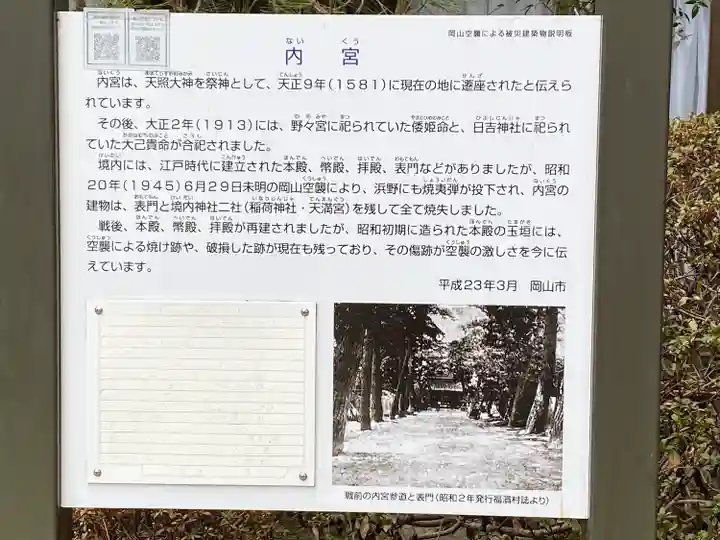 岡山空襲による被災建築物説明板
内宮
内宮は、天照大神を祭神として、天正9年(1581)に現在の地に遷座されたと伝えら
れています。
その後、大正2年(1913)には、野々宮に祀られていた倭姫命と、日吉神社に祀られ
ていた大己貴命が合祀されました。
境内には、江戸時代に建立された本殿、幣殿、拝殿、表門などがありましたが、昭和
20年(1945)6月29日未明の岡山空襲により、浜野にも焼夷弾が投下され、内宮の
建物は、表門と境内神社二社(稲荷神社・天満宮)を残して全て焼失しました。
戦後、本殿、幣殿、拝殿が再建されましたが、昭和初期に造られた本殿の玉垣には、
空襲による焼け跡や、破損した跡が現在も残っており、その傷跡が空襲の激しさを今に伝
えています。
平成23年3月 岡山市
戦前の内宮参道と表門(昭和2年発行福濱村誌より)